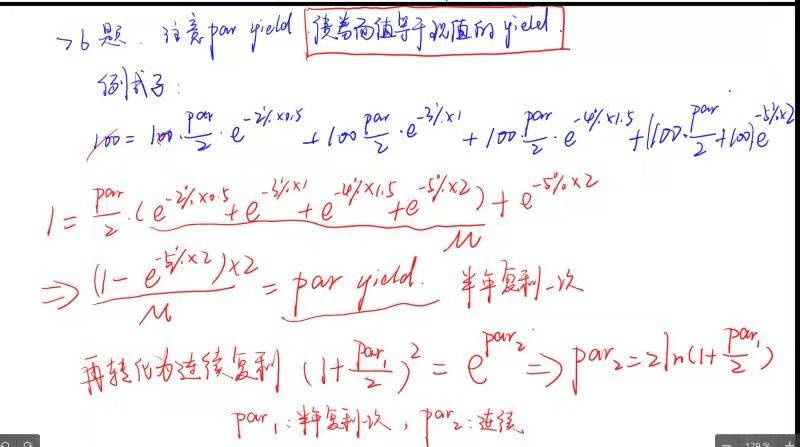 >6题. 注意par yield 债券面值等于现值的yield.
例式子:
100 = 100·par/2·e^{-2%×0.5} + 100 par/2·e^{-3%×1} + 100·par/2·e^{-4%×1.5} + (100·par/2+100)e^{-5%×2}
1 = par/2·(e^{-2%×0.5}+e^{-3%×1}+e^{-4%×1.5}+e^{-5%×2}) + e^{-5%×2}
M
⇒ (1-e^{-5%×2})×2/M = par yield. 半年复利一次
再转化为连续复利 (1+par₁/2)² = e^{par₂} ⇒ par₂=2ln(1+par₁/2)
par₁:半年复利一次, par₂:连续
129%